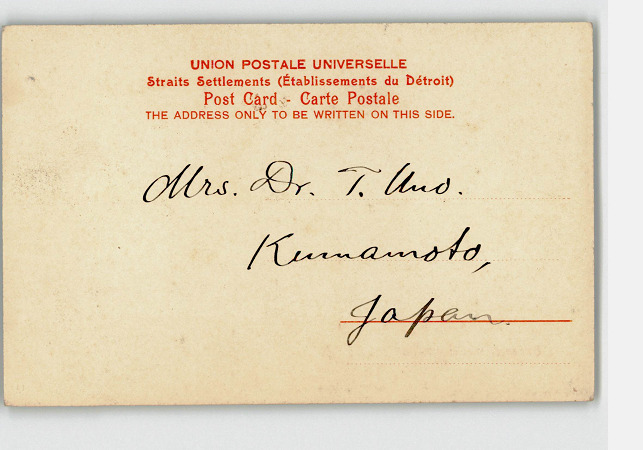 UNION POSTALE UNIVERSELLE
Straits Settlements (Établissements du Détroit)
Post Card - Carte Postale
THE ADDRESS ONLY TO BE WRITTEN ON THIS SIDE.
Mrs. Dr. T. Uno.
Kumamoto,
Japan.